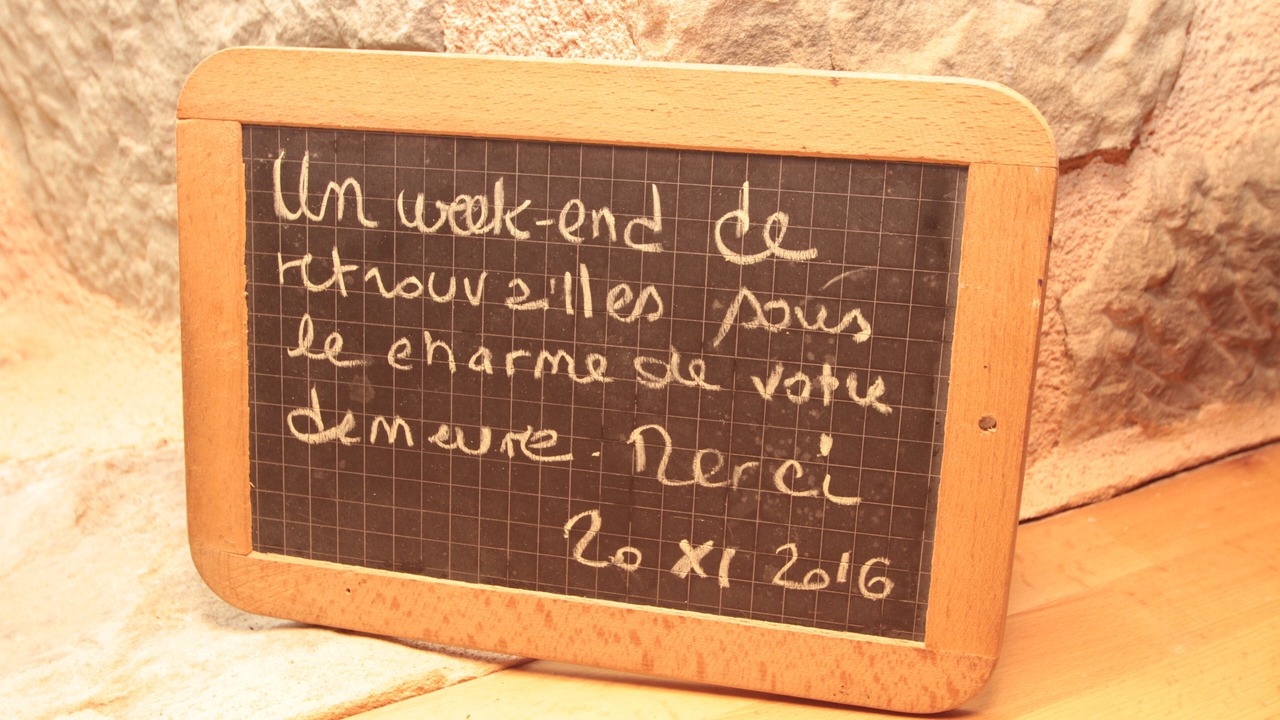 Un week-end de
retrouvailles sous
le charme de votre
demeure. Merci
20 XI 2016